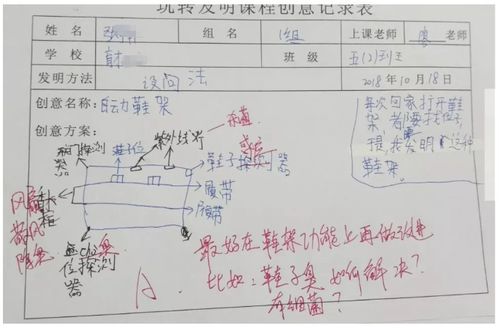 玩转发明课程创意记录表
姓名
组名
1组
上课老师
廖老师
学校
班级
五(2)班
发明方法
设问法
2018年10月18日
创意名称:自动鞋架
创意方案:
每次回家打开鞋
架都要找位子,
提我发明了这种
鞋架.
杀菌
紫外线灯
感应
鞋子位
鞋子探测器
履带
履带
风扇
散风
除臭
位探测
器
最好在鞋探功能上再做改进
比如:鞋子臭如何解决?
有细菌?
A